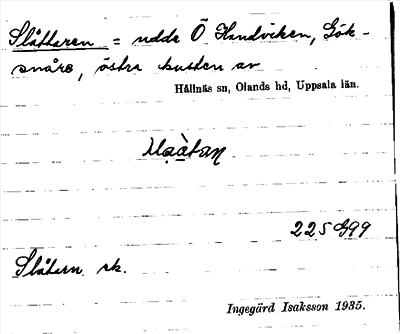 Slåttaren = udde Ö Handviken, Gök-
snåre, östra kusten av
Hållnäs sn, Olands hd, Uppsala län.
225 G99
Slåtern sk.
Ingegärd Isaksson 1935.